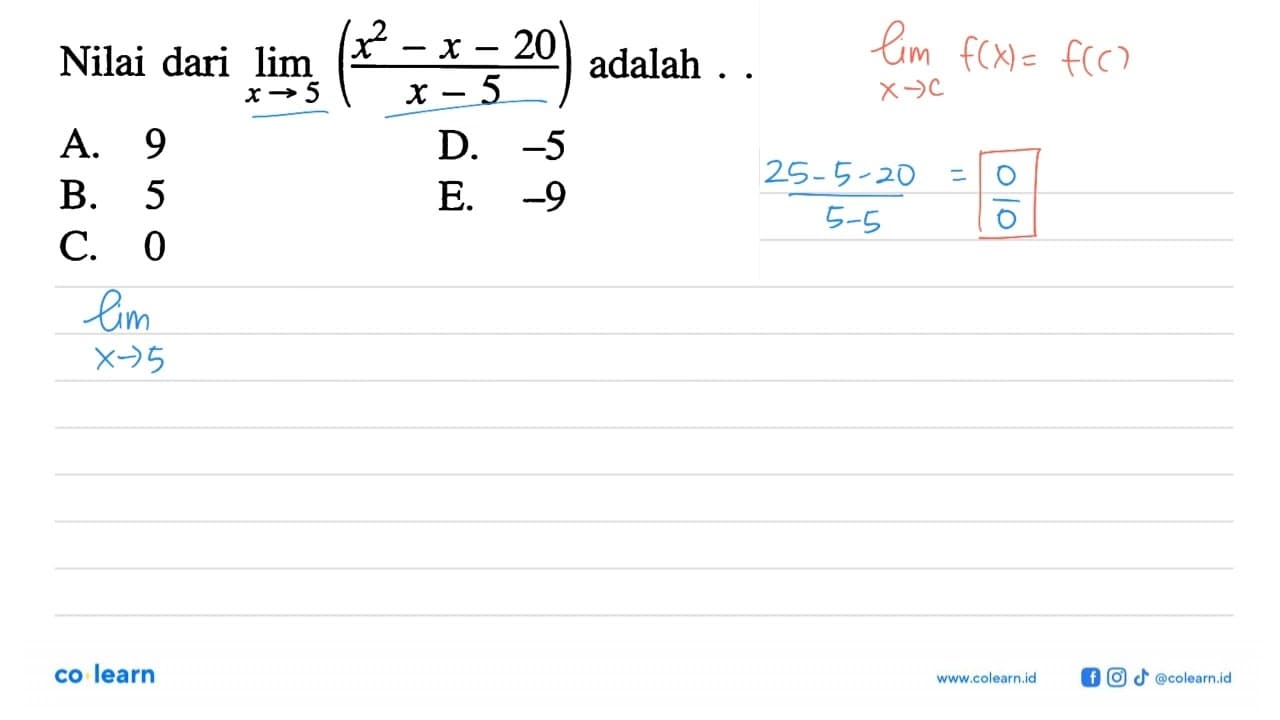 Nilai dari lim x→5 ((x² - x - 20)/(x - 5)) adalah . .
A. 9
B. 5
C. 0
D. -5
E. -9
lim x→c f(x) = f(c)
(25-5-20)/(5-5) = 0/0
lim x→5
co learn
www.colearn.id
@colearn.id